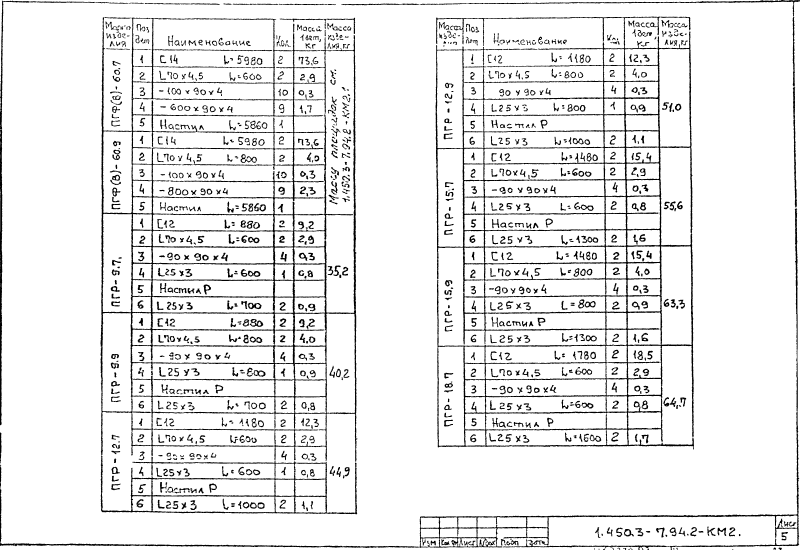 Марка изделия | Поз дет | Наименование | Кол. | Масса 1 дет, кг | Масса изделия, кг
ПГФ(В)-60.7
1 [14 L=5980 2 73,6
2 L70×4,5 L=600 2 2,9
3 -100×90×4 10 0,3
4 -600×90×4 9 1,7
5 Настил L=5860 1
ПГФ(В)-60.9
1 [14 L=5980 2 73,6
2 L70×4,5 L=800 2 4,0
3 -100×90×4 10 0,3
4 -800×90×4 9 2,3
5 Настил L=5860 1
Массу площадок см. 1.450.3-7.94.2-КМ2.1
ПГР-9.7, 35,2
1 [12 L=880 2 9,2
2 L70×4,5 L=600 2 2,9
3 -90×90×4 4 0,3
4 L25×3 L=600 1 0,8
5 Настил Р
6 L25×3 L=700 2 0,9
ПГР-9.9 40,2
1 [12 L=880 2 9,2
2 L70×4,5 L=800 2 4,0
3 -90×90×4 4 0,3
4 L25×3 L=800 1 0,9
5 Настил Р
6 L25×3 L=700 2 0,8
ПГР-12.7 44,9
1 [12 L=1180 2 12,3
2 L70×4,5 L=600 2 2,9
3 -90×90×4 4 0,3
4 L25×3 L=600 1 0,8
5 Настил Р
6 L25×3 L=1000 2 1,1
Марка изделия | Поз дет | Наименование | Кол | Масса 1 дет, кг | Масса изделия, кг
ПГР-12,9 51,0
1 [12 L=1180 2 12,3
2 L70×4,5 L=800 2 4,0
3 90×90×4 4 0,3
4 L25×3 L=800 1 0,9
5 Настил Р
6 L25×3 L=1000 2 1,1
ПГР-15.7 55,6
1 [12 L=1480 2 15,4
2 L70×4,5 L=600 2 2,9
3 -90×90×4 4 0,3
4 L25×3 L=600 2 0,8
5 Настил Р
6 L25×3 L=1300 2 1,6
ПГР-15,9 63,3
1 [12 L=1480 2 15,4
2 L70×4,5 L=800 2 4,0
3 -90×90×4 4 0,3
4 L25×3 L=800 2 0,9
5 Настил Р
6 L25×3 L=1300 2 1,6
ПГР-18.7 64,7
1 [12 L=1780 2 18,5
2 L70×4,5 L=600 2 2,9
3 -90×90×4 4 0,3
4 L25×3 L=600 2 0,8
5 Настил Р
6 L25×3 L=1600 2 1,7
Изм Лист Подп Дата
1.450.3-7.94.2-КМ2.
Лист
5